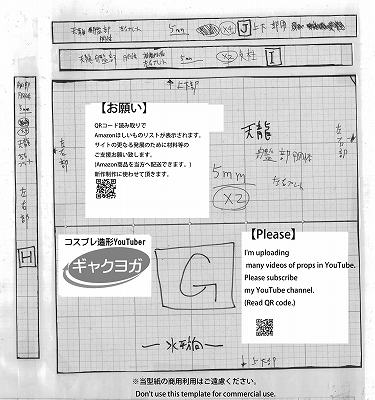 5mm
X4
J
上下部用
5mm
X2
I
上下部
【お願い】
QRコード読み取りで
Amazonほしいものリストが表示されます。
サイトの更なる発展のために材料等の
ご支援お願い致します。
(Amazon商品を当方へ配送できます。)
新作制作に使わせて頂きます。
天龍
5mm
X2
左右部
左右部
5mm
天龍
左右部
H
コスプレ造形YouTuber
ギャクヨガ
G
【Please】
I'm uploading
many videos of props in YouTube.
Please subscribe
my YouTube channel.
(Read QR code.)
水平向
上下部
※当型紙の商用利用はご遠慮ください。
Don't use this template for commercial use.